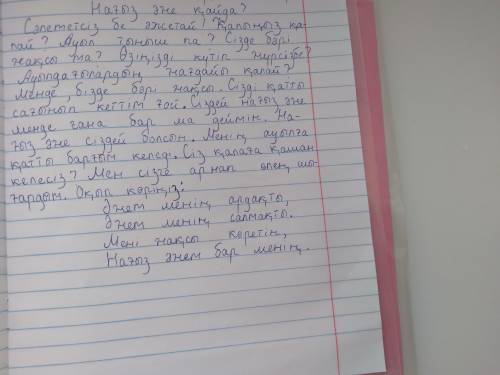 Нағыз әже қайда?
Сәлеметсіз бе әжетай! Қалыңыз қа-
лай? Ауыл тыныш па? Сізде бәрі
жақсы ма? Өзіңізді күтіп жүрсіз бе?
Ауылдағылардың жағдайы қалай?
Менде, бізде бәрі жақсы. Сізді қатты
сағынып кеттім ғой. Сіздей нағыз әже
менде ғана бар ма деймін. На-
ғыз әже сіздей болсын. Менің ауылға
қатты барғым келеді. Сіз қалаға қашан
келесіз? Мен сізге арнап өлең шы-
ғардым. Оқып көріңіз:
Әжем менің ардақты,
Әжем менің салмақты.
Мені жақсы көретін,
Нағыз әжем бар менің.